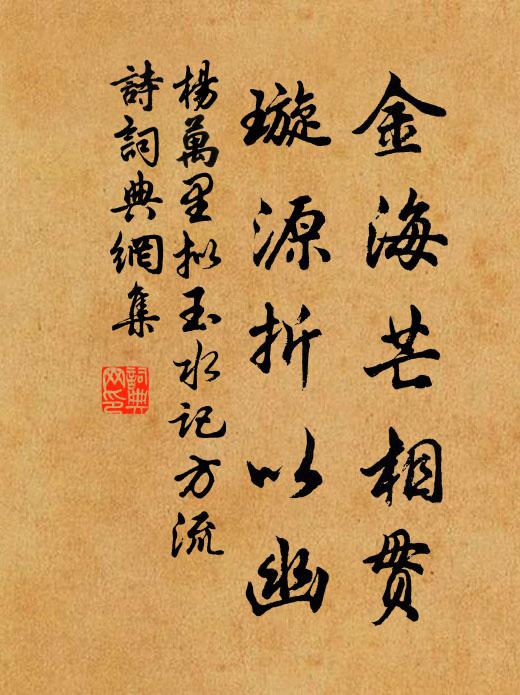 金海芒相贯
璇源折以幽
楊萬里拟玉水记方流
詩詞典網集
詞典网印